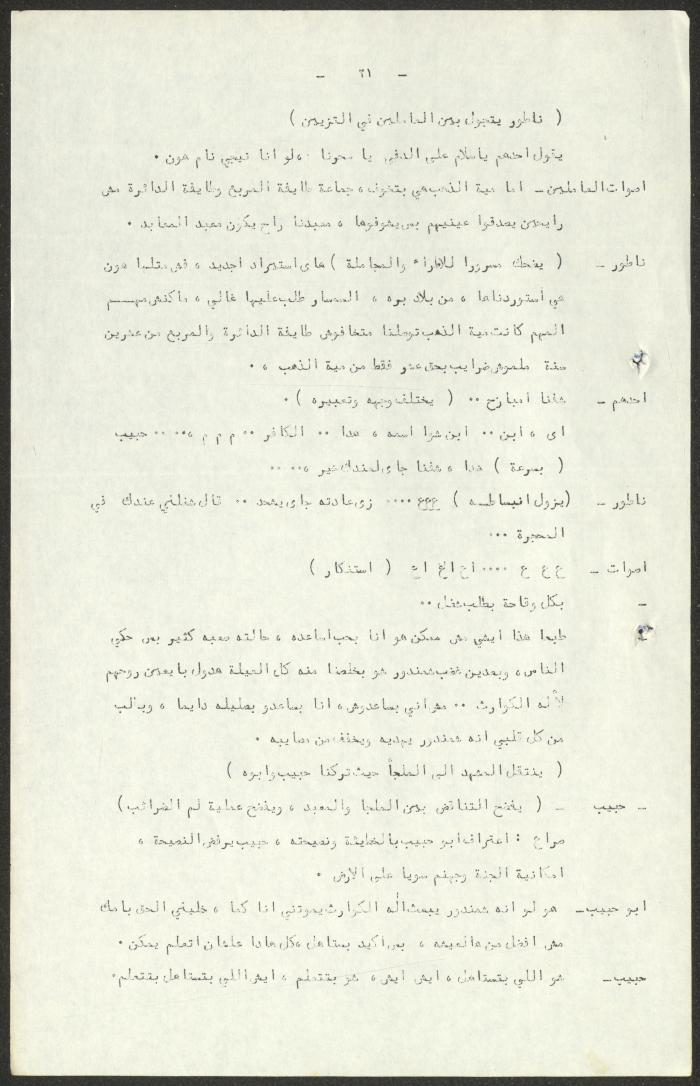 - ٣١ -
( ناطور يتجول بين العاملين في التزيين )
يقول احدهم ياسلام على الدفى يا سحرنا ، لو انا نيجي نام هون .
اصوات العاملين - اما مية الذهب هي بتخوف ، جماعة طايفة المربع وطايفة الدائرة مش
رايحين يصدقوا عينيهم بس يشوفوها ، معبدنا راح يكون معبد المعابد .
ناطور - ( يضحك مسرورا للاطراء والمجاملة ) هاى استيراد اجديد ، فش متلها هون
هي استوردناها ، من بلاد بره ، السمسار طلب عليها غالي ، ماكنش مهم
المهم كانت مية الذهب توصلنا متخافوش طايفة الدائرة والمربع من عشرين
سنة ملموش ضرايب بحق عشر فقط من مية الذهب ، .
احدهم - شفنا امبارح .. ( يختلف وجهه وتعبيره ) .
اى ، ابن .. ابن شو اسمه ، هدا .. الكافر .. م م م ،.. .. حبيب
( بسرعة ) هدا ، شفنا جاى لعندك خير ،.. ..
ناطور - (يزول انبساطه ) ععع .... زى عادته جاى يشحد .. قال شغلني عندك في
الحجرة ...
اصوات - ع ع ع .... اع الغ اع ( استنكار )
- بكل وقاحة بطلب شغل ..
- طبعا هذا ايشي مش ممكن هو انا بحب اساعده ، حالته صعبه كثير بس حكي
الناس ، وبعدين غضب شمندور هو بخلصنا منه كل العيلة هدول بايعين روحهم
لأله الكوارث .. مش اني بساعدوش ، انا بساعدو بصليله دايما ، وبالب
من كل قلبي انه شمندور يهديه ويخفف من مصايبه .
( ينتقل المشهد الى الملجأ حيث تركنا حبيب وابوه )
- حبيب - ( يفضح التناقض بين الملجا والمعبد ، ويفضح عملية لم الضرائب)
صراع : اعتراف ابو حبيب بالخطيئة ونصيحته ، حبيب يرفض النصيحة ،
امكانية الجنة وجهنم سويا على الارض .
ابو حبيب - هو لو انه شمندور يبعث اله الكوارث يموتني انا كما ، خليني الحق بامك
مش افضل من هالعيشه ، بس اكيد بستاهل ، كل هادا علشان اتعلم يمكن .
حبيب - شو اللي بتستاهل ، ايش ايش ، شو بتتعلم ، ايش اللي بتستاهل بتتعلم.